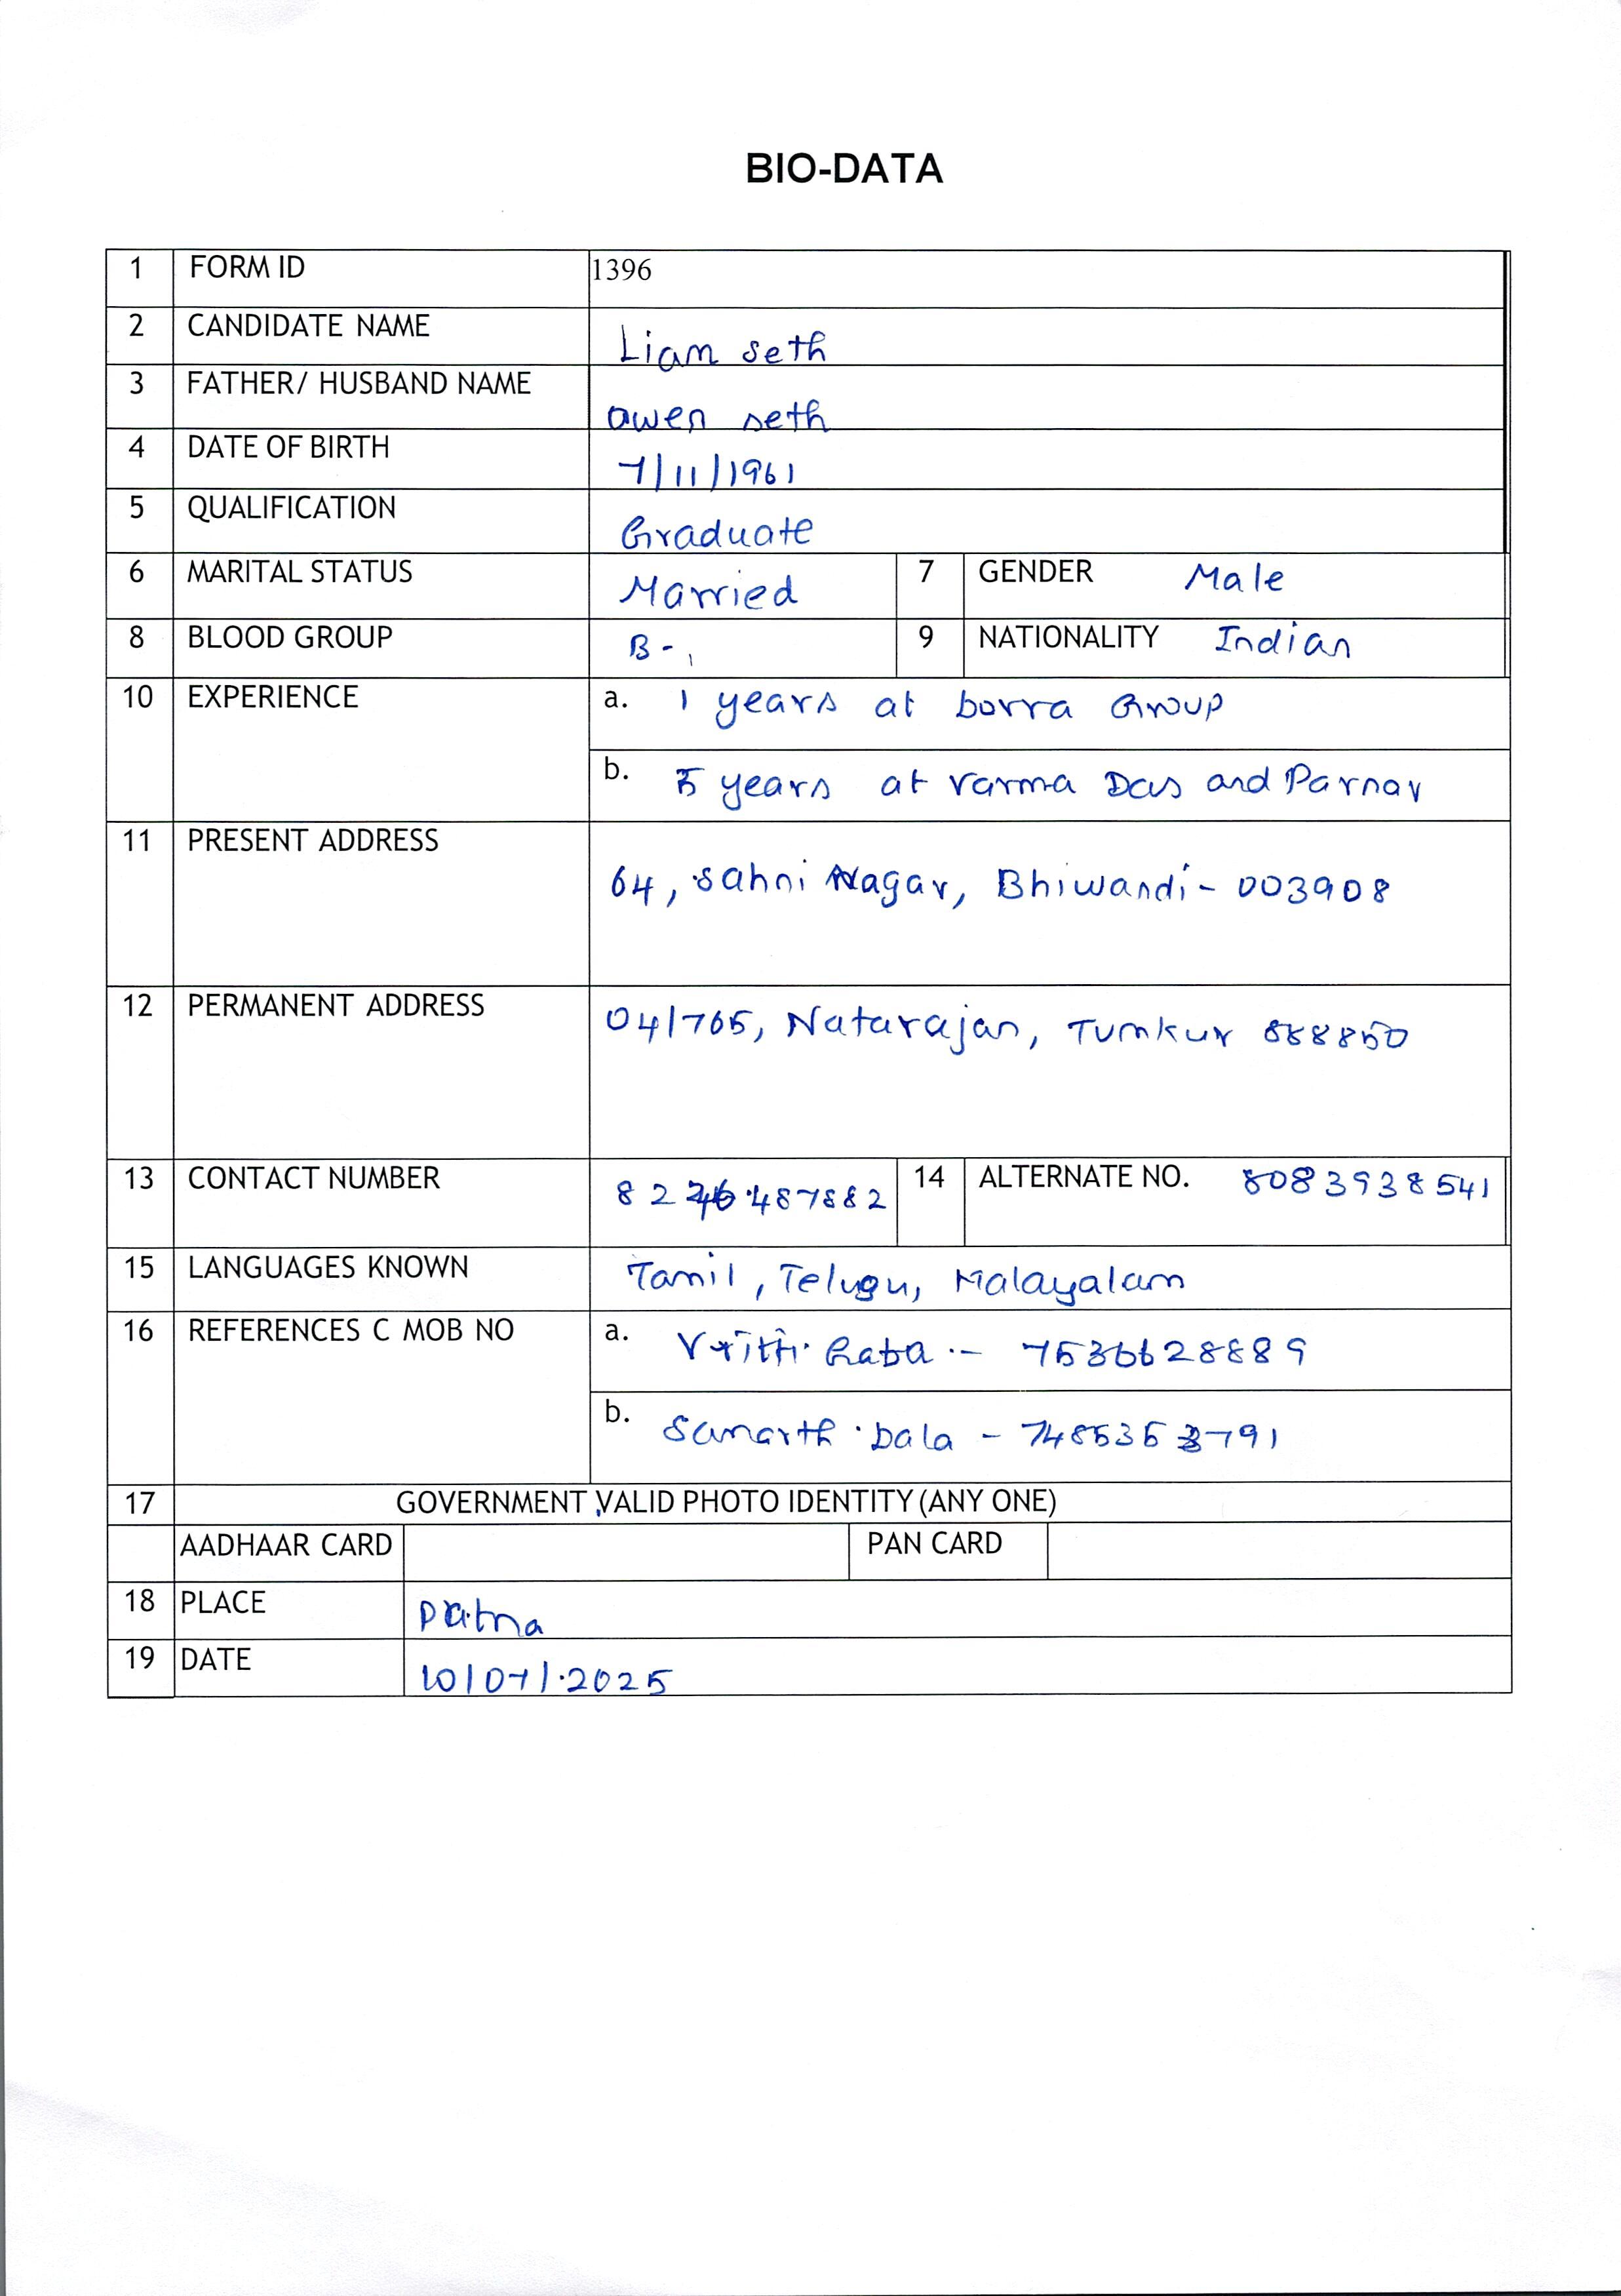 BIO-DATA
1 FORM ID 1396
2 CANDIDATE NAME Liam seth
3 FATHER/ HUSBAND NAME owen seth
4 DATE OF BIRTH 7/11/1961
5 QUALIFICATION Graduate
6 MARITAL STATUS Married 7 GENDER Male
8 BLOOD GROUP B- 9 NATIONALITY Indian
10 EXPERIENCE a. 1 years at borra Group
b. 5 years at varma Das and Parnav
11 PRESENT ADDRESS
64, Sahni Nagar, Bhiwandi - 003908
12 PERMANENT ADDRESS 04/765, Natarajan, Tumkur 888850
13 CONTACT NUMBER 14 ALTERNATE NO. 8083938541
15 LANGUAGES KNOWN Tamil, Telugu, Malayalam
16 REFERENCES C MOB NO a. Raba - 7536628889
b. Samarth Dala - 7485353791
17 GOVERNMENT VALID PHOTO IDENTITY (ANY ONE)
AADHAAR CARD PAN CARD
18 PLACE Patna
19 DATE 10/07/2025